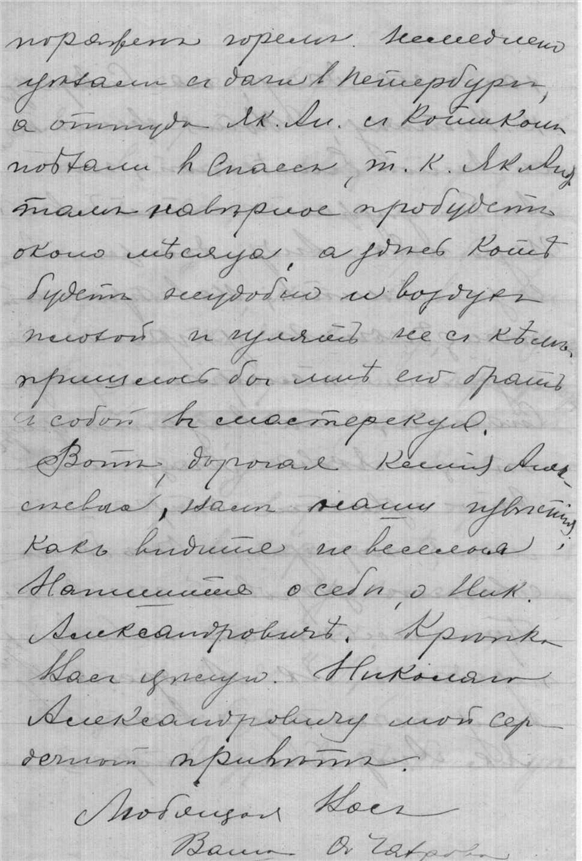 пораженъ горемъ. Немедленно
уѣхали съ дачи въ Петербургъ,
а оттуда Як. Ал. съ Котикомъ
поѣхали въ Спасск, т. к. Як Ал
тамъ навѣрное пробудетъ
около мѣсяца, а здѣсь Котѣ
будетъ неудобно и воздухъ
плохой и гулять не съ кѣмъ.
пришлось бы мнѣ его брать
съ собой въ мастерскую.
Вотъ, дорогая Ксенія Алек-
сѣевна, Вамъ наши извѣстія,
какъ видите не веселыя
Напишите о себѣ, о Ник.
Александровичѣ. Крѣпко
Васъ цѣлую. Николаю
Александровичу мой сер-
дечный привѣтъ.
Любящая Васъ
Ваша О.